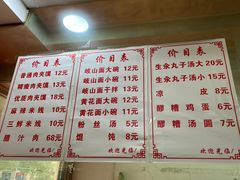 价目表
普通肉夹馍 12元
辣椒肉夹馍 12元
优质肉夹馍 18元
麻辣米线 10元
三鲜米线 10元
腊汁肉 68元
欢迎光临!
价目表
岐山面大碗 12元
岐山面小碗 11元
岐山面干拌 13元
黄花面大碗 12元
黄花面小碗 11元
粉丝汤 5元
馄饨 8元
欢迎光临!
价目表
生汆丸子汤大 20元
生汆丸子汤小 15元
凉皮 8元
醪糟鸡蛋 6元
醪糟汤圆 7元
欢迎光临!